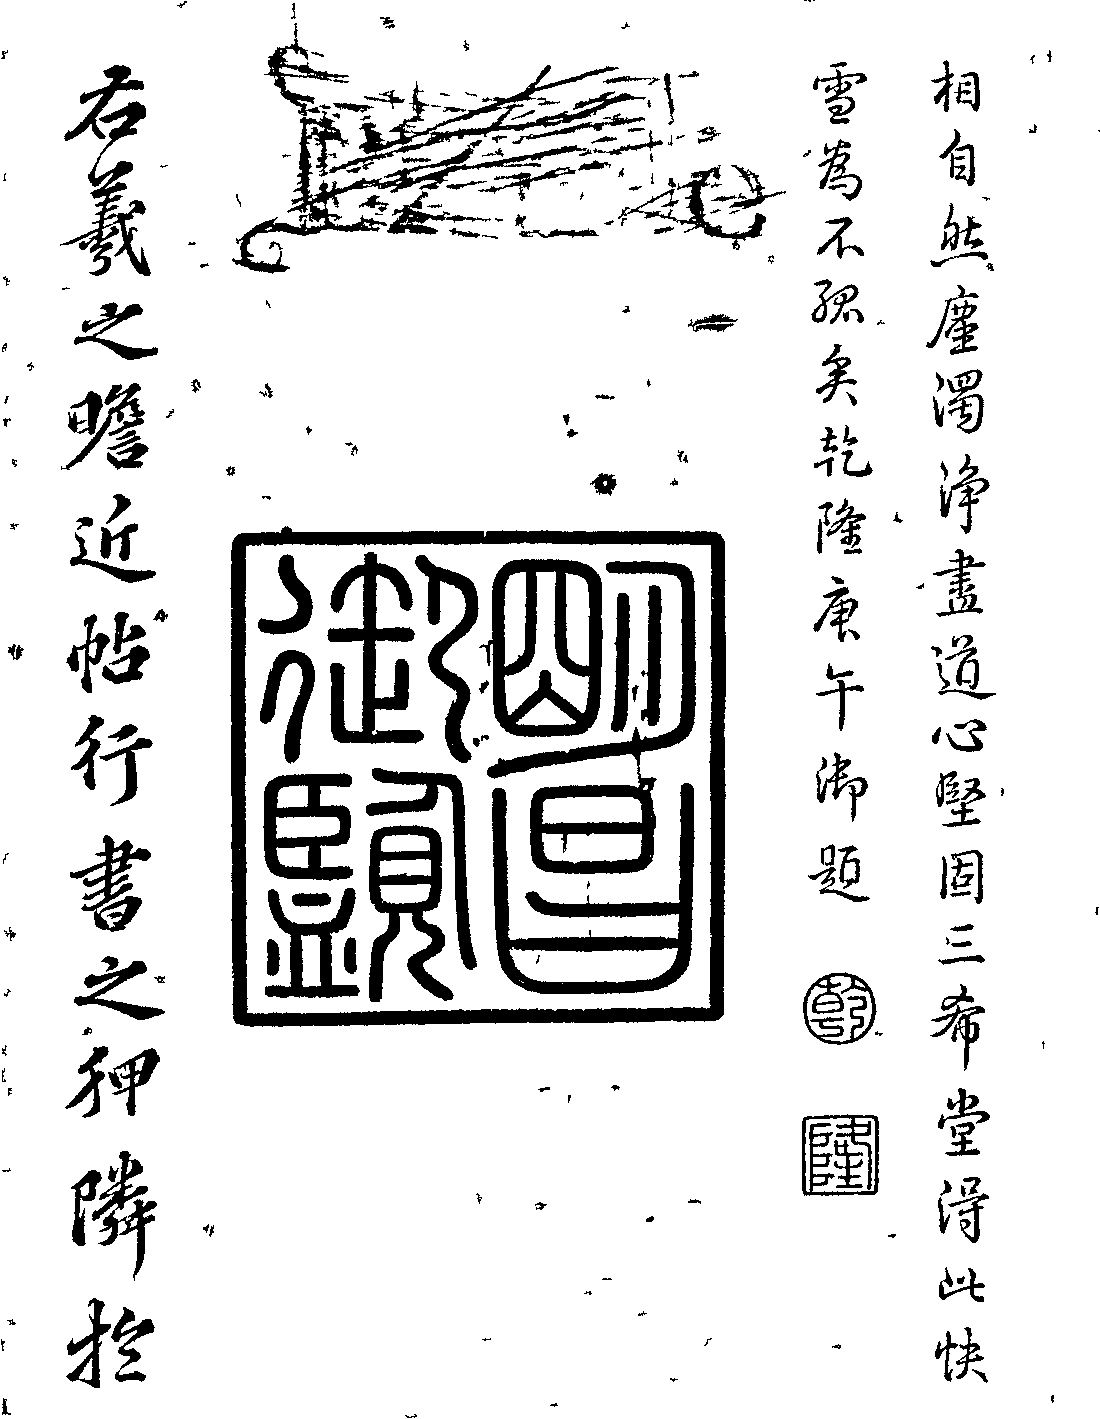 相自然塵濁浄盡道心堅固三希堂得此快
雪為不孤矣乾隆庚午御題
乾
隆
明昌
御覽
右羲之瞻近帖行書之狎隣扵